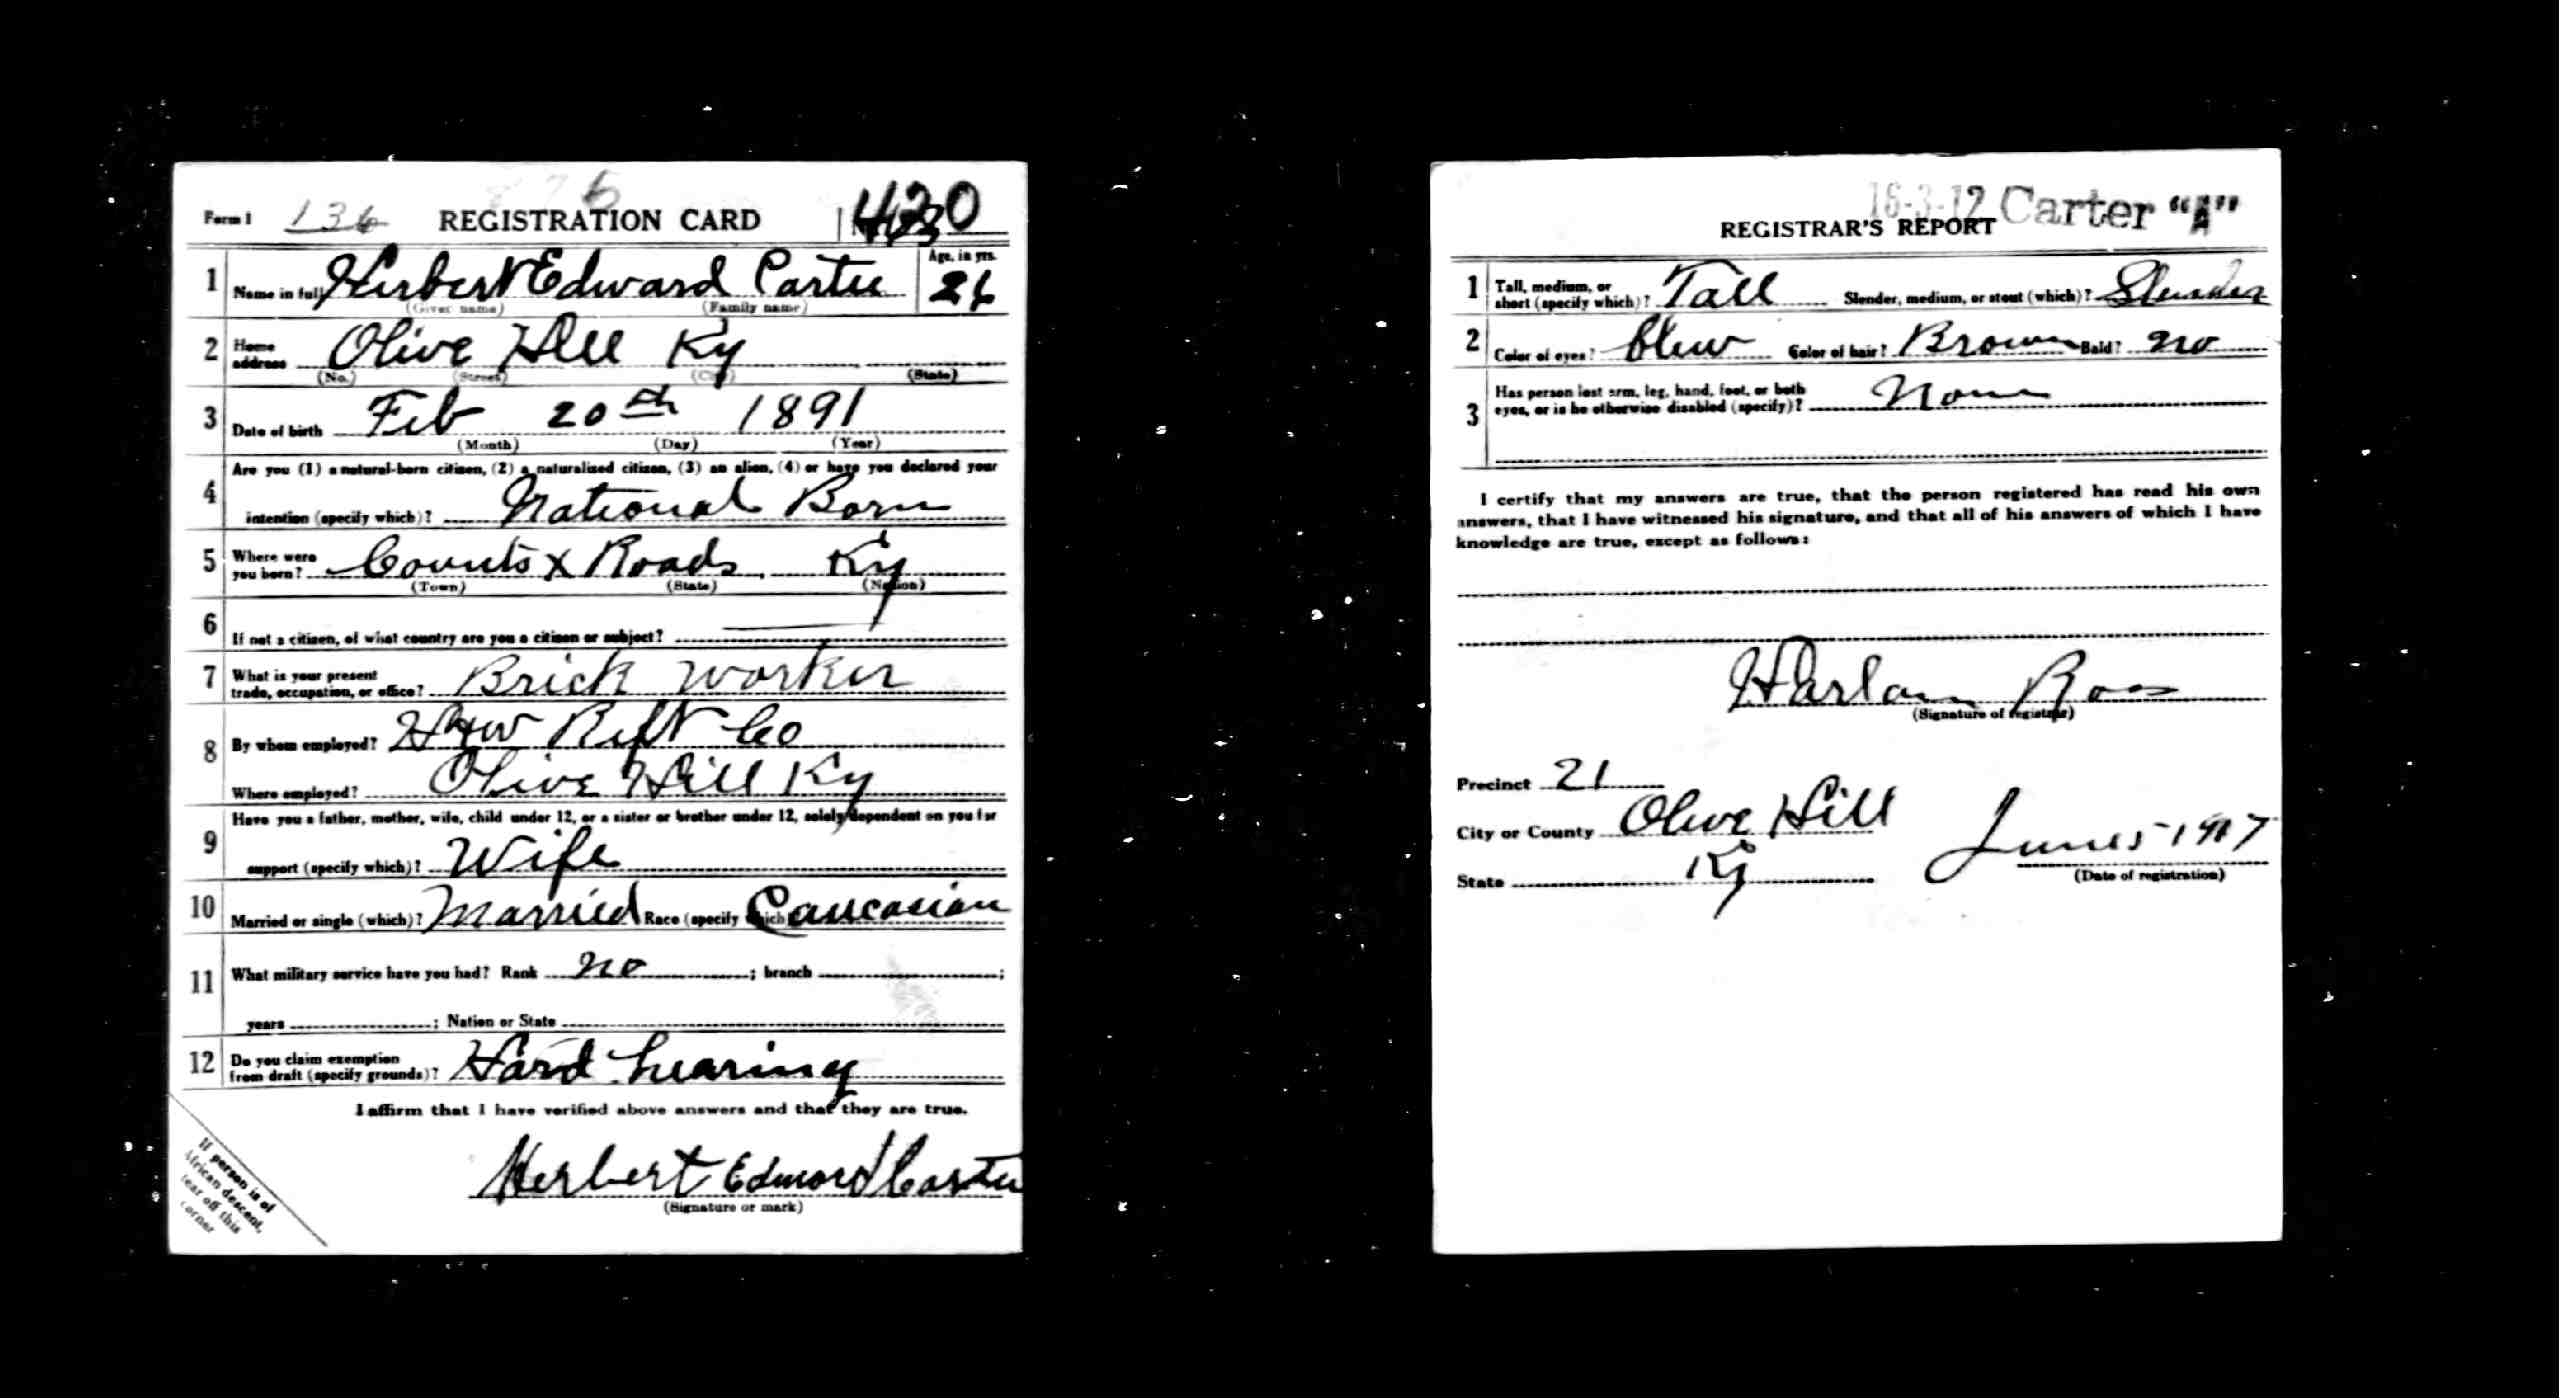 Form 1 136 REGISTRATION CARD 420
1 Name in full Herbert Edward Cartee Age, in yrs. 26
(Given name) (Family name)
2 Home address Olive Hill Ky
(No.) (Street) (City) (State)
3 Date of birth Feb 20th 1891
(Month) (Day) (Year)
4 Are you (1) a natural-born citizen, (2) a naturalized citizen, (3) an alien, (4) or have you declared your
intention (specify which)? National Born
5 Where were you born? Counts X Roads, Ky
(Town) (State) (Nation)
6 If not a citizen, of what country are you a citizen or subject?
7 What is your present trade, occupation, or office? Brick worker
8 By whom employed? Reft Co
Where employed? Olive Hill Ky
9 Have you a father, mother, wife, child under 12, or a sister or brother under 12, solely dependent on you for
support (specify which)? Wife
10 Married or single (which)? Married Race (specify which) Caucasian
11 What military service have you had? Rank no ; branch ;
years ; Nation or State
12 Do you claim exemption from draft (specify grounds)? Hard hearing
I affirm that I have verified above answers and that they are true.
Herbert Edward Cartee
(Signature or mark)
If person is of
African descent,
tear off this
corner
16-3-12 Carter "A"
REGISTRAR'S REPORT
1 Tall, medium, or short (specify which)? Tall Slender, medium, or stout (which)? Slender
2 Color of eyes? Blew Color of hair? Brown Bald? no
3 Has person lost arm, leg, hand, foot, or both
eyes, or is he otherwise disabled (specify)? None
I certify that my answers are true, that the person registered has read his own
answers, that I have witnessed his signature, and that all of his answers of which I have
knowledge are true, except as follows:
Harlan Ross
(Signature of registrar)
Precinct 21
City or County Olive Hill
State Ky June 5 1917
(Date of registration)